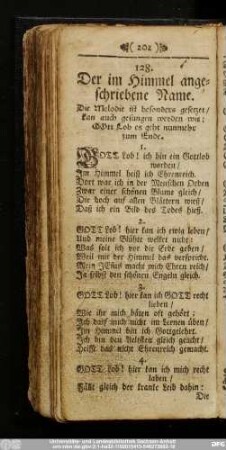 ( 202 )
128.
Der im Himmel ange-
schriebene Name.
Die Melodie ist besonders gesetzet/
kan auch gesungen werden wie:
GOtt Lob es geht nunmehr
zum Ende.
1.
GOTT Lob! ich bin ein Gottlob
worden/
Im Himmel heiß ich Ehrenreich.
Dort war ich in der Menschen Orden
Zwar einer schönen Blume gleich/
Die doch auf allen Blättern wieß/
Daß ich ein Bild des Todes hieß.
2.
GOTT Lob! hier kan ich ewig leben/
Und meine Blühte welket nicht:
Was solt ich vor der Erde geben/
Weil mir der Himmel das verspricht.
Mein JEsus macht mich Ehren reich/
Ja selbst den schönen Engeln gleich.
3.
GOTT Lob! hier kan ich GOTT recht
lieben/
Wie ihr auch dort oft gehört:
Ich darf mich nicht im Lernen üben/
Im Himmel bin ich Gottgelehrt.
Ich bin den Aeltsten gleich geacht/
Heist das nicht Ehrenreich gemacht.
4.
GOTT Lob! hier kan ich mich recht
laben/
Fält gleich der kranke Leib dahin:
Die
Universitäts- und Landesbibliothek Sachsen-Anhalt